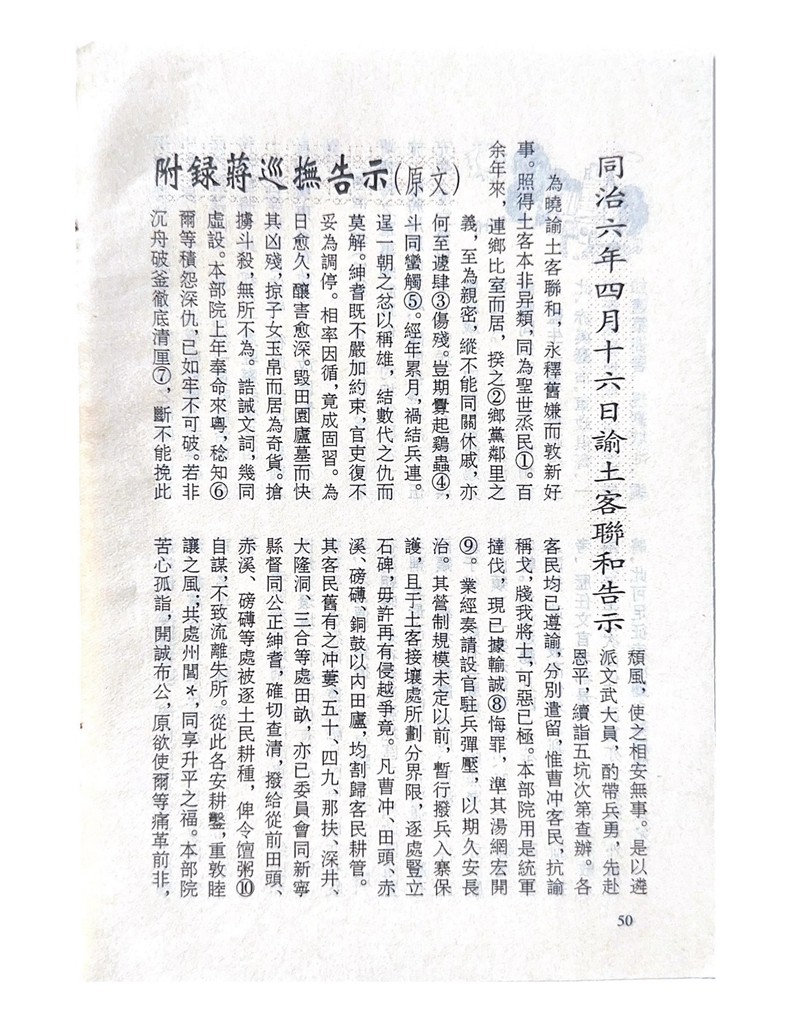 附録蔣巡撫告示(原文)
同治六年四月十六日諭土客聯和告示
為曉諭土客聯和，永釋舊嫌而敦新好
事。照得土客本非异類，同為聖世烝民①。百
余年來，連鄉比室而居，揆之②鄉黨鄰里之
義，至為親密，縱不能同關休戚，亦
何至遽肆③傷殘。豈期釁起鷄蟲④，
斗同蠻觸⑤。經年累月，禍結兵連。
逞一朝之忿以稱雄，結數代之仇而
莫解。紳耆既不嚴加約束，官吏復不
妥為調停。相率因循，竟成固習。為
日愈久，釀害愈深。毀田園廬墓而快
其凶殘，掠子女玉帛而居為奇貨。搶
擄斗殺，無所不為。誥誡文詞，幾同
虛設。本部院上年奉命來粵，稔知⑥
爾等積怨深仇，已如牢不可破。若非
沉舟破釜徹底清厘⑦，斷不能挽此
頹風，使之相安無事。是以遴
派文武大員，酌帶兵勇，先赴
恩平，續詣五坑次第查辦。各
客民均已遵諭，分別遣留，惟曹冲客民，抗諭
稱戈，戕我將士，可惡已極。本部院用是統軍
撻伐，現已據輸誠⑧悔罪，準其湯網宏開
⑨。業經奏請設官駐兵彈壓，以期久安長
治。其營制規模未定以前，暫行撥兵入寨保
護，且于土客接壤處所劃分界限，逐處豎立
石碑，毋許再有侵越爭竟。凡曹冲、田頭、赤
溪、磅礴、銅鼓以内田廬，均割歸客民耕管。
其客民舊有之冲蔞、五十、四九、那扶、深井、
大隆洞、三合等處田畝，亦已委員會同新寧
縣督同公正紳耆，確切查清，撥給從前田頭、
赤溪、磅礴等處被逐土民耕種，俾令饘粥⑩
自謀，不致流離失所。從此各安耕鑿，重敦睦
讓之風；共處州閭*，同享升平之福。本部院
苦心孤詣，開誠布公，原欲使爾等痛革前非，
50